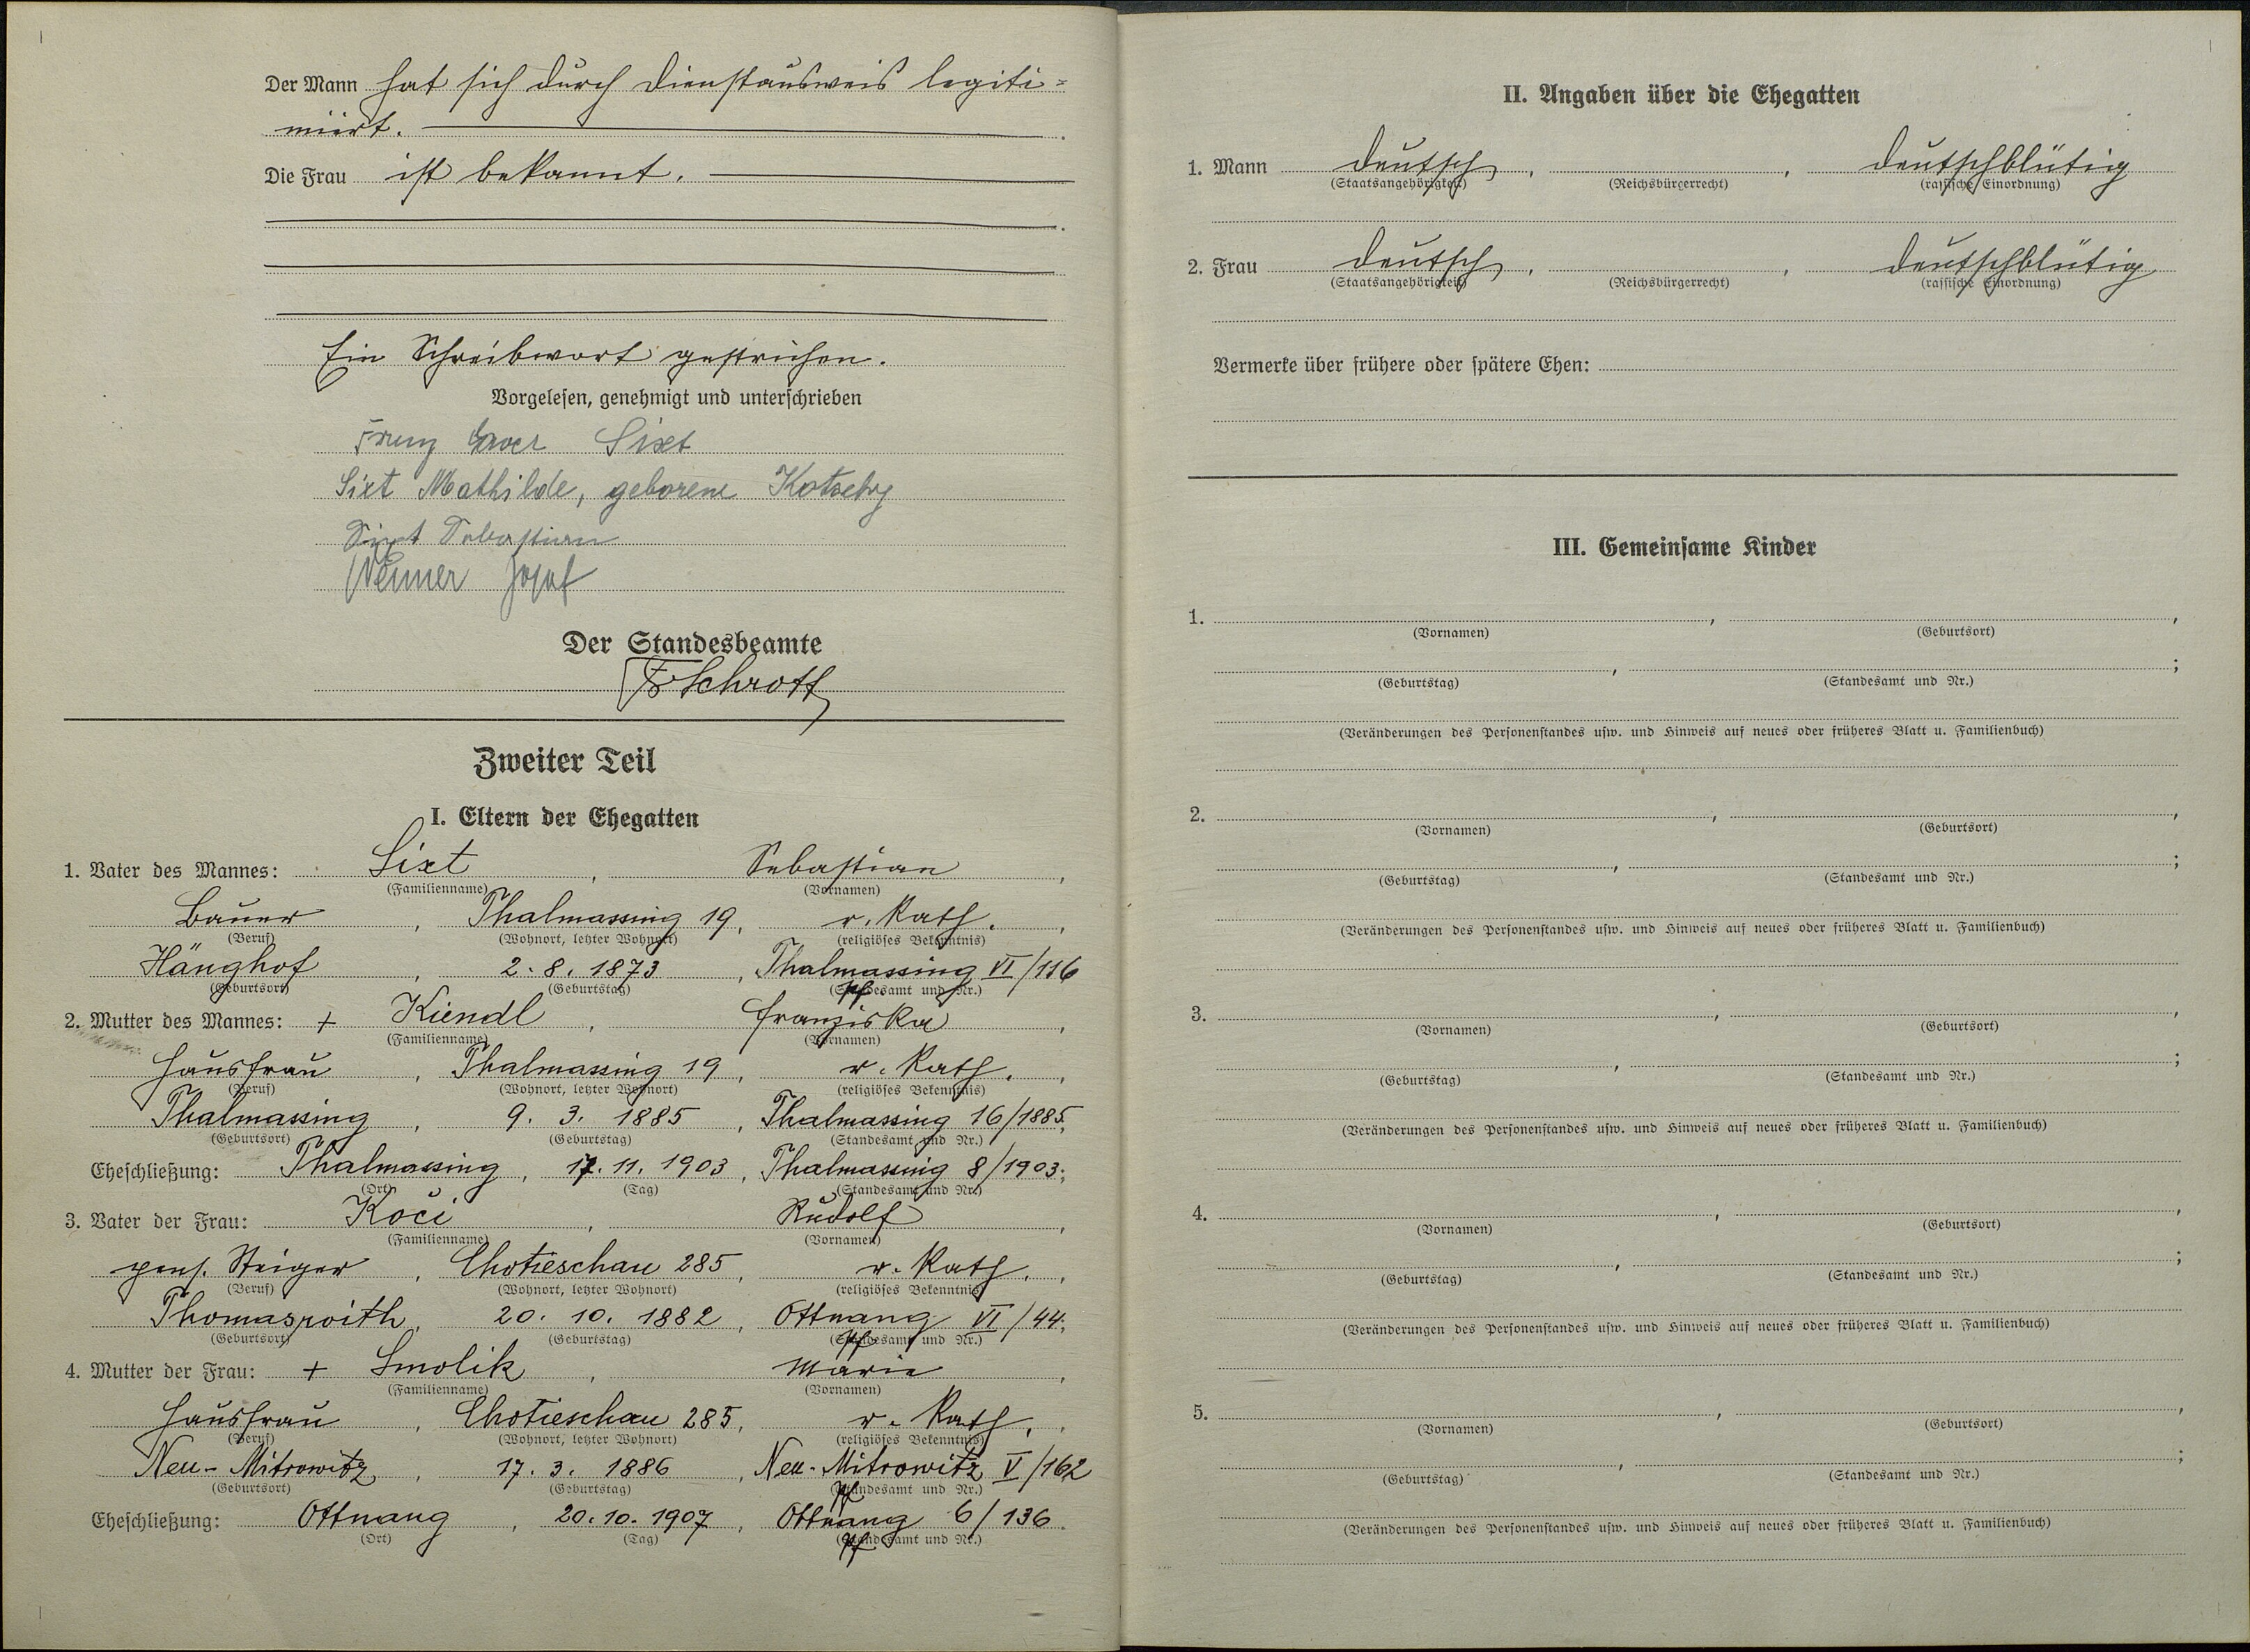 Der Mann hat sich durch Dienstausweis legiti=
miert.
Die Frau ist bekannt.
Ein Schreibwort gestrichen.
Vorgelesen, genehmigt und unterschrieben
Franz Xaver Sixt
Sixt Mathilde, geborene
Sixt Sebastian
Josef
Der Standesbeamte
Schrott
Zweiter Teil
I. Eltern der Ehegatten
1. Vater des Mannes: Sixt, Sebastian,
(Familienname) (Vornamen)
Bauer, Thalmassing 19, r. kath.,
(Beruf) (Wohnort, letzter Wohnort) (religiöses Bekenntnis)
Hänghof, 2. 8. 1873, Thalmassing VI/116
(Geburtsort) (Geburtstag) (Standesamt und Nr.)
2. Mutter des Mannes: + Kiendl, Franziska,
(Familienname) (Vornamen)
Hausfrau, Thalmassing 19, r. kath.,
(Beruf) (Wohnort, letzter Wohnort) (religiöses Bekenntnis)
Thalmassing, 9. 3. 1885, Thalmassing 16/1885;
(Geburtsort) (Geburtstag) (Standesamt und Nr.)
Eheschließung: Thalmassing, 17. 11. 1903, Thalmassing 8/1903;
(Ort) (Tag) (Standesamt und Nr.)
3. Vater der Frau: Kočí, Rudolf,
(Familienname) (Vornamen)
pens. Steiger, Chotieschau 285, r. kath.,
(Beruf) (Wohnort, letzter Wohnort) (religiöses Bekenntnis)
Thomasroith, 20. 10. 1882, Ottnang VI/44;
(Geburtsort) (Geburtstag) (Standesamt und Nr.)
4. Mutter der Frau: + Smolik, Marie,
(Familienname) (Vornamen)
Hausfrau, Chotieschau 285, r. kath.,
(Beruf) (Wohnort, letzter Wohnort) (religiöses Bekenntnis)
Neu-Mitrowitz, 17. 3. 1886, Neu-Mitrowitz V/162
(Geburtsort) (Geburtstag) (Standesamt und Nr.)
Eheschließung: Ottnang, 20. 10. 1907, Ottnang 6/136.
(Ort) (Tag) (Standesamt und Nr.)
II. Angaben über die Ehegatten
1. Mann deutsch, , deutschblütig
(Staatsangehörigkeit) (Reichsbürgerrecht) (rassische Einordnung)
2. Frau deutsch, , deutschblütig
(Staatsangehörigkeit) (Reichsbürgerrecht) (rassische Einordnung)
Vermerke über frühere oder spätere Ehen:
III. Gemeinsame Kinder
1. , ,
(Vornamen) (Geburtsort)
, ;
(Geburtstag) (Standesamt und Nr.)
(Veränderungen des Personenstandes usw. und Hinweis auf neues oder früheres Blatt u. Familienbuch)
2. , ,
(Vornamen) (Geburtsort)
, ;
(Geburtstag) (Standesamt und Nr.)
(Veränderungen des Personenstandes usw. und Hinweis auf neues oder früheres Blatt u. Familienbuch)
3. , ,
(Vornamen) (Geburtsort)
, ;
(Geburtstag) (Standesamt und Nr.)
(Veränderungen des Personenstandes usw. und Hinweis auf neues oder früheres Blatt u. Familienbuch)
4. , ,
(Vornamen) (Geburtsort)
, ;
(Geburtstag) (Standesamt und Nr.)
(Veränderungen des Personenstandes usw. und Hinweis auf neues oder früheres Blatt u. Familienbuch)
5. , ,
(Vornamen) (Geburtsort)
, ;
(Geburtstag) (Standesamt und Nr.)
(Veränderungen des Personenstandes usw. und Hinweis auf neues oder früheres Blatt u. Familienbuch)